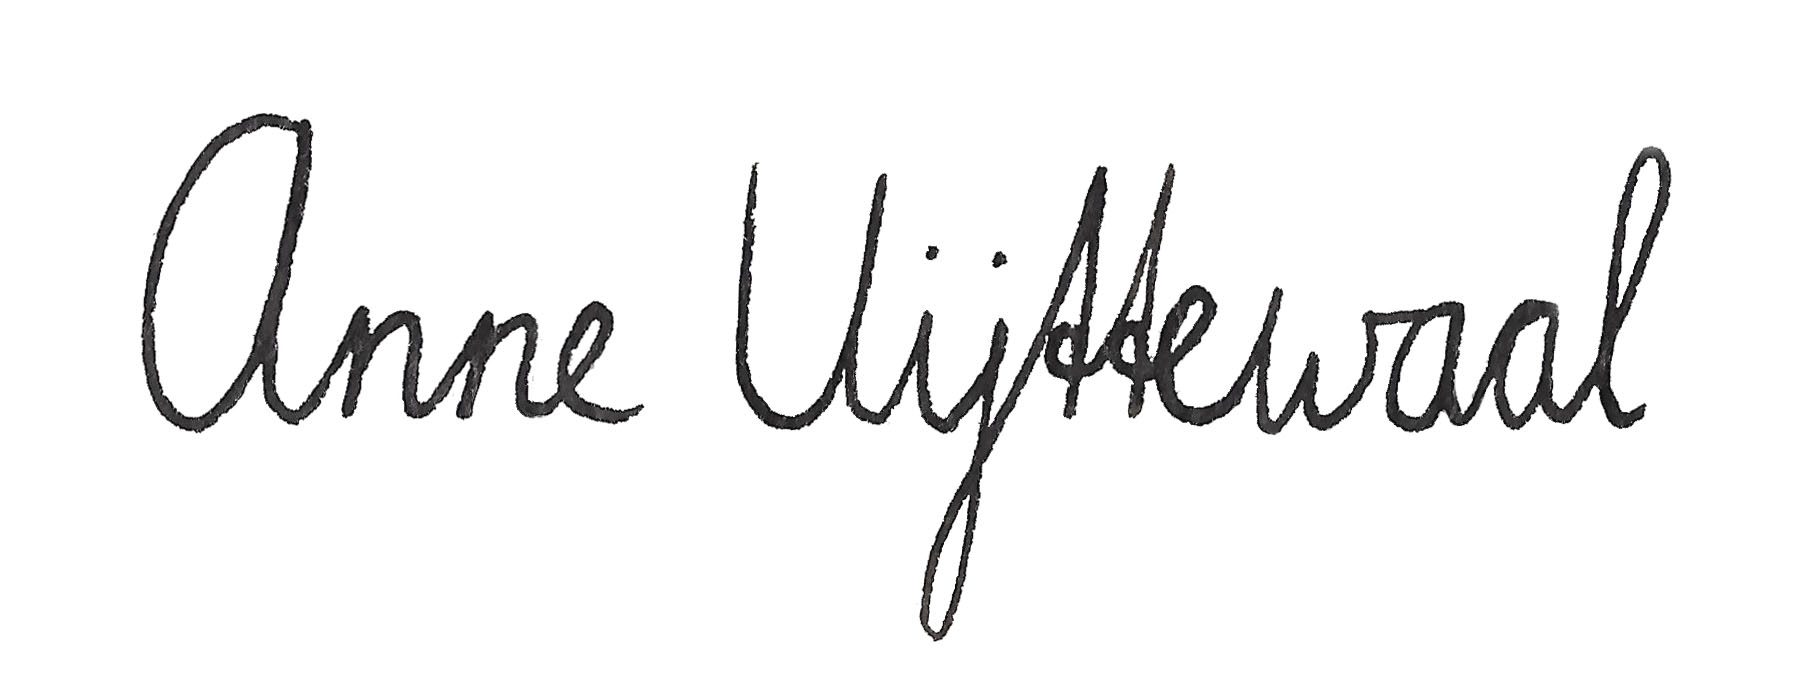 Anne Uijttewaal